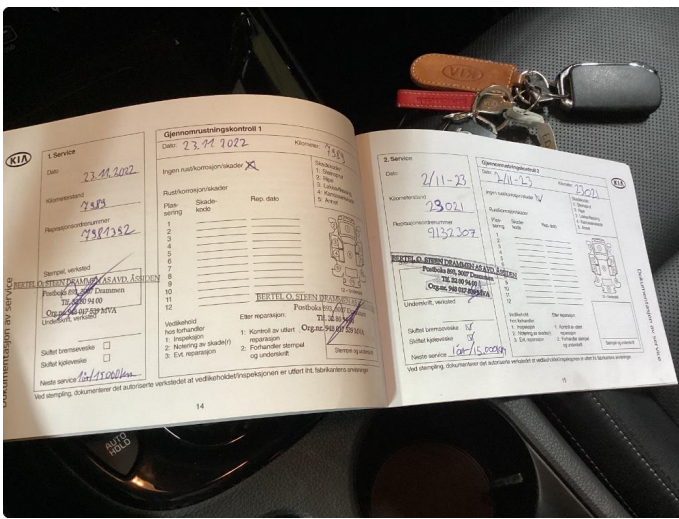 KIA
1. Service
Dato: 23.11.2022
Kilometerstand
7989
Reparasjonsordrenummer
7981392
Stempel, verksted
BERTEL O. STEEN DRAMMEN AS AVD. ÅSSIDEN
Postboks 893, 3007 Drammen
Tlf. 32 80 94 00
Org.nr. 948 017 539 MVA
Underskrift, verksted
Skiftet bremsevæske
Skiftet kjølevæske
Neste service 1år/15000km
Gjennomrustningskontroll 1
Dato: 23.11.2022
Kilometer: 7989
Ingen rust/korrosjon/skader X
Rust/korrosjon/skader
Skadekoder
1: Steinsprut
2: Ripe
3: Lakkavflassing
4: Karosseriskade
5: Annet
Plas-sering
Skade-kode
Rep. dato
1
2
3
4
5
6
7
8
9
10
11
12
BERTEL O. STEEN DRAMMEN AS
Postboks 893, 3007
Org.nr. 948 017 539 MVA
Vedlikehold
hos forhandler
1: Inspeksjon
2: Notering av skade(r)
3: Evt. reparasjon
Etter reparasjon:
1: Kontroll av utført
reparasjon
2: Forhandler stempel
og underskrift
Stempel og underskrift
Ved stempling, dokumenterer det autoriserte verkstedet at vedlikeholdet/inspeksjonen er utført iht. fabrikantens anvisninger
14
Dokumentasjon av service
2. Service
Dato:
2/11-23
Kilometerstand
23021
Reparasjonsordrenummer
9132307
BERTEL O. STEEN DRAMMEN AS AVD. ÅSSIDEN
Postboks 893, 3007 Drammen
Tlf. 32 80 94 00
Org.nr. 948 017 539 MVA
Underskrift, verksted
Skiftet bremsevæske
Skiftet kjølevæske
Neste service 1år/15.000km
Gjennomrustningskontroll 2
Dato: 2/11-23
Kilometer: 23021
Ingen rust/korrosjon/skader
Rust/korrosjon/skader
Plas-sering
Skade-kode
Rep. dato
Vedlikehold
hos forhandler
1: Inspeksjon
2: Notering av skade(r)
3: Evt. reparasjon
Etter reparasjon:
1: Kontroll av utført
reparasjon
2: Forhandler stempel
og underskrift
Stempel og underskrift
Ved stempling, dokumenterer det autoriserte verkstedet at vedlikeholdet/inspeksjonen er utført iht. fabrikantens anvisninger
15
KIA
Dokumentasjon av service
KIA
AUTO
HOLD